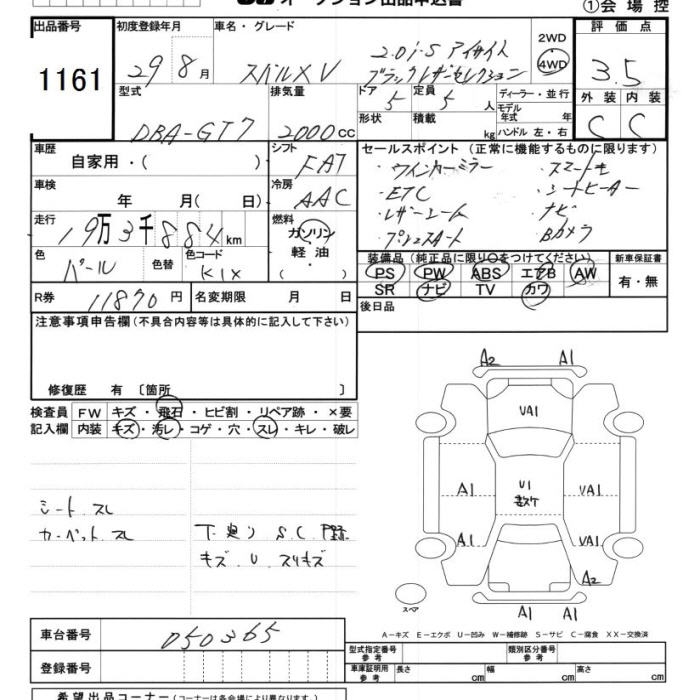 オークション出品申込書
①会場控
出品番号 1161
初度登録年月 29 8月
車名・グレード スバルXV 2.0i-S アイサイト
ブラックレザーセレクション
2WD
4WD
評価点 3.5
外装 C 内装 C
型式 DBA-GT7
排気量 2000cc
ドア 5 定員 5人
形状 積載 kg
ディーラー・並行
モデル年式 年
ハンドル 左・右
車歴 自家用・( )
シフト FAT
車検 年 月( 日)
冷房 AAC
走行 19万3千884km
燃料 ガソリン
軽油
( )
色 パール
色替
色コード K1X
R券 11870円
名変期限 月 日
セールスポイント(正常に機能するものに限ります)
・ウインカーミラー ・スマートキ
・ETC ・シートヒーター
・レザーシート ・ナビ
・プッシュスタート ・Bカメラ
装備品(純正品に限り○をつけてください)
PS PW ABS エアB AW
SR ナビ TV カワ
新車保証書
有・無
後日品
注意事項申告欄(不具合内容等は具体的に記入して下さい)
修復歴 有〔箇所 〕
検査員 FW キズ・飛石・ヒビ割・リペア跡・×要
記入欄 内装 キズ・汚レ・コゲ・穴・スレ・キレ・破レ
シート、スレ
カーペット スレ
下廻り S.C
キズ U スリキズ
A2 A1
UA1
A1 U1 VA1
A1 VA1
A2
スペア
A1 A1
A-キズ E-エクボ U-凹み W-補修跡 S-サビ C-腐食 XX-交換済
車台番号 050365
登録番号
型式指定番号 参考
類別区分番号 参考
車庫証明用 参考 長さ cm 幅 cm 高さ cm
希望出品コーナー(コーナーは各会場により異なります)